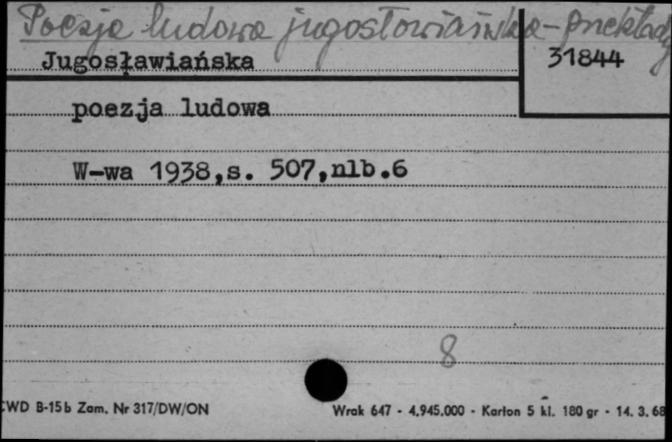 Poezja ludowa jugosłowiańska - przekłady
Jugosławiańska
31844
poezja ludowa
W-wa 1938,s. 507,nlb.6
8
CWD B-15b Zam. Nr 317/DW/ON
Wrak 647 - 4.945.000 - Karton 5 kl. 180 gr - 14. 3. 68